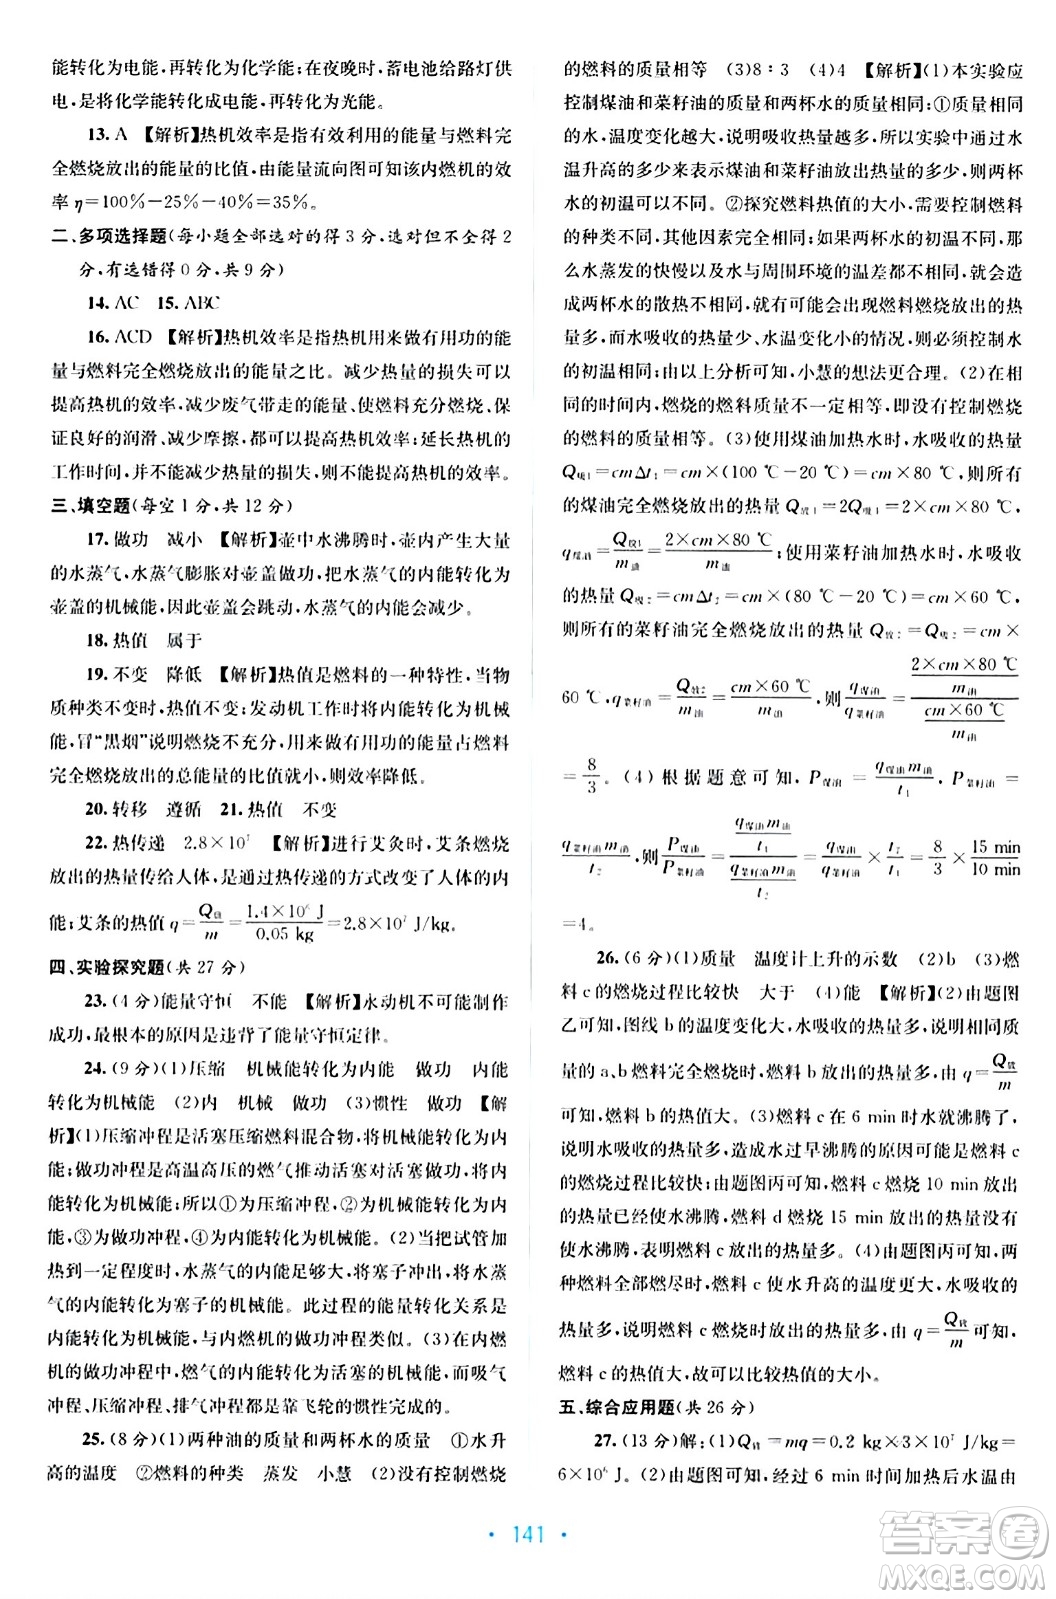 能转化为电能，再转化为化学能；在夜晚时，蓄电池给路灯供
电，是将化学能转化成电能，再转化为光能。
13. A 【解析】热机效率是指有效利用的能量与燃料完
全燃烧放出的能量的比值，由能量流向图可知该内燃机的效
率 η=100%-25%-40%=35%。
二、多项选择题(每小题全部选对的得 3 分，选对但不全得 2
分，有选错得 0 分，共 9 分)
14. AC 15. ABC
16. ACD 【解析】热机效率是指热机用来做有用功的能
量与燃料完全燃烧放出的能量之比。减少热量的损失可以
提高热机的效率，减少废气带走的能量、使燃料充分燃烧、保
证良好的润滑、减少摩擦，都可以提高热机效率；延长热机的
工作时间，并不能减少热量的损失，则不能提高热机的效率。
三、填空题(每空 1 分，共 12 分)
17. 做功 减小 【解析】壶中水沸腾时，壶内产生大量
的水蒸气，水蒸气膨胀对壶盖做功，水蒸气的内能转化为
壶盖的机械能，因此壶盖会跳动，水蒸气的内能会减少。
18. 热值 属于
19. 不变 降低 【解析】热值是燃料的一种特性，当物
质种类不变时，热值不变；发动机工作时将内能转化为机械
能，冒“黑烟”说明燃烧不充分，用来做有用功的能量占燃料
完全燃烧放出的总能量的比值就小，则效率降低。
20. 转移 遵循 21. 热值 不变
22. 热传递 2.8×10⁷ 【解析】进行艾灸时，艾条燃烧
放出的热量传给人体，是通过热传递的方式改变了人体的内
能；艾条的热值 q=Q放/m=1.4×10⁶ J/0.05 kg=2.8×10⁷ J/kg。
四、实验探究题(共 27 分)
23. (4 分)能量守恒 不能 【解析】水动机不可能制作
成功，最根本的原因是违背了能量守恒定律。
24. (9 分)(1)压缩 机械能转化为内能 做功 内能
转化为机械能 (2)内 机械 做功 (3)惯性 做功 【解
析】(1)压缩冲程是活塞压缩燃料混合物，机械能转化为内
能；做功冲程是高温高压的燃气推动活塞对活塞做功，将内
能转化为机械能；所以①为压缩冲程，②为机械能转化为内
能，③为做功冲程，④为内能转化为机械能。(2)当把试管加
热到一定程度时，水蒸气的内能足够大时，塞子冲出，水蒸气
的内能转化为塞子的机械能。此过程的能量转化关系是
内能转化为机械能，与内燃机的做功冲程类似。(3)在内燃
机的做功冲程中，燃气的内能转化为活塞的机械能，而吸气
冲程、压缩冲程、排气冲程是靠飞轮的惯性完成的。
25. (8 分)(1)两种油的质量和两杯水的质量 ①水升
高的温度 ②燃料的种类 蒸发 小慧 (2)没有控制燃烧
的燃料的质量相等 (3)8∶3 (4)4 【解析】(1)本实验应
控制煤油和菜籽油的质量和两杯水的质量相同；①质量相同
的水，温度变化越大，说明吸收热量越多，所以实验中用水
温升高的多少来表示煤油和菜籽油放出热量的多少，则两杯
水的初温可以不同。②探究燃料热值的大小，需要控制燃料
的种类不同，其他因素完全相同；如果两杯水的初温不同，那
么水蒸发的快慢以及水与周围环境的温差都不相同，就会造
成两杯水的散热不相同，就有可能会出现燃料燃烧放出的热
量多，而水吸收的热量少、水温变化小的情况，则必须保证水
初温相同；由以上分析可知，小慧的想法更合理。(2)在相
同的时间内，燃烧的燃料质量不一定相等，即没有控制燃烧
的燃料的质量相等。(3)使用煤油加热水时，水吸收的热量
Q吸1=cmΔt₁=cm×(100 ℃-20 ℃)=cm×80 ℃，则所有
的煤油完全燃烧放出的热量 Q放1=2Q吸1=2×cm×80 ℃，
q煤油=Q放1/m油=2×cm×80 ℃/m油；使用菜籽油加热水时，水吸收
的热量 Q吸2=cmΔt₂=cm×(80 ℃-20 ℃)=cm×60 ℃，
则所有的菜籽油完全燃烧放出的热量 Q放2=Q吸2=cm×
60 ℃，q菜籽油=Q放2/m油=cm×60 ℃/m油，则 q煤油/q菜籽油=(2×cm×80 ℃/m油)/(cm×60 ℃/m油)
=8/3。(4)根据题意可知，P煤油=q煤油m油/t₁，P菜籽油=
q菜籽油m油/t₂，则 P煤油/P菜籽油=(q煤油m油/t₁)/(q菜籽油m油/t₂)=q煤油/q菜籽油×t₂/t₁=8/3×15 min/10 min
=4。
26. (6 分)(1)质量 温度计上升的示数 (2)b (3)燃
料 c 的燃烧过程比较快 大于 (4)能 【解析】(2)由题图
乙可知，图线 b 的温度变化大，水吸收的热量多，说明相同质
量的 a、b 燃料完全燃烧时，燃料 b 放出的热量多，由 q=Q放/m
可知，燃料 b 的热值大。(3)燃料 c 在 6 min 时水就沸腾了，
说明水吸收的热量多，造成水过早沸腾的原因可能是燃料 c
的燃烧过程比较快；由题图丙可知，燃料 c 燃烧 10 min 放出
的热量已经使水沸腾，燃料 d 燃烧 15 min 放出的热量没有
使水沸腾，表明燃料 c 放出的热量多。(4)由题图丙可知，两
种燃料全部燃尽时，燃料 c 使水升高的温度大，水吸收的
热量多，说明燃料 c 燃烧时放出的热量多，由 q=Q放/m可知，
燃料 c 的热值大，故可以比较热值的大小。
五、综合应用题(共 26 分)
27. (13 分)解：(1)Q放=mq=0.2 kg×3×10⁷ J/kg=
6×10⁶ J。(2)由题图可知，经过 6 min 时间加热后水温由
· 141 ·
答案卷
MXQE.COM